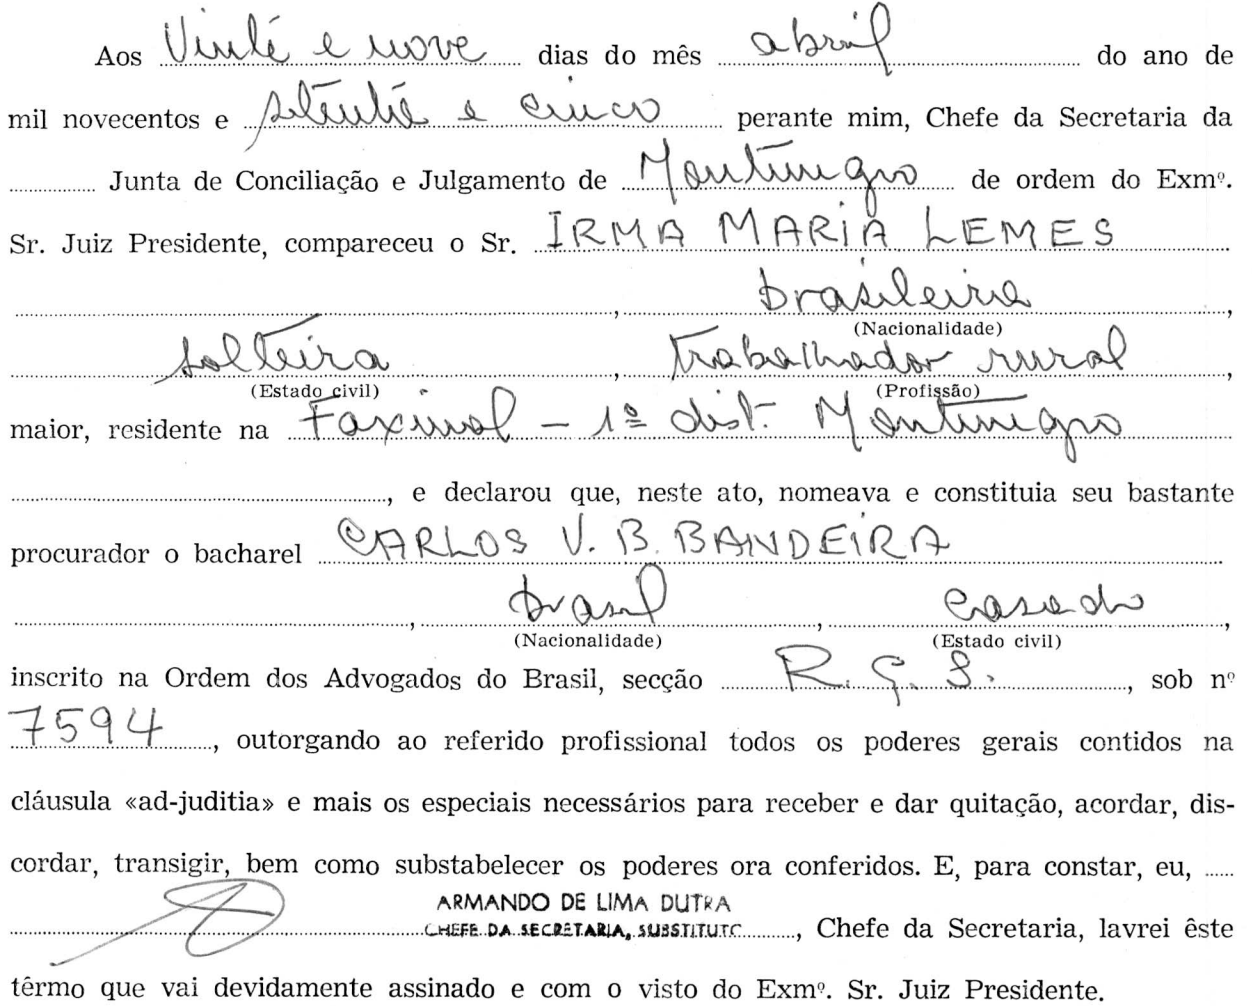 Aos Vinte e nove dias do mês abril do ano de
mil novecentos e setenta e cinco perante mim, Chefe da Secretaria da
Junta de Conciliação e Julgamento de Montenegro de ordem do Exmº.
Sr. Juiz Presidente, compareceu o Sr. IRMA MARIA LEMES
, brasileira,
(Nacionalidade)
solteira, trabalhador rural,
(Estado civil) (Profissão)
maior, residente na Faxinal - 1º dist. Montenegro
, e declarou que, neste ato, nomeava e constituia seu bastante
procurador o bacharel CARLOS V. B. BANDEIRA
, brasil, casado,
(Nacionalidade) (Estado civil)
inscrito na Ordem dos Advogados do Brasil, secção R. G. S., sob nº
7594, outorgando ao referido profissional todos os poderes gerais contidos na
cláusula «ad-juditia» e mais os especiais necessários para receber e dar quitação, acordar, dis-
cordar, transigir, bem como substabelecer os poderes ora conferidos. E, para constar, eu,
ARMANDO DE LIMA DUTRA
CHEFE DA SECRETARIA, SUBSTITUTO, Chefe da Secretaria, lavrei êste
têrmo que vai devidamente assinado e com o visto do Exmº. Sr. Juiz Presidente.